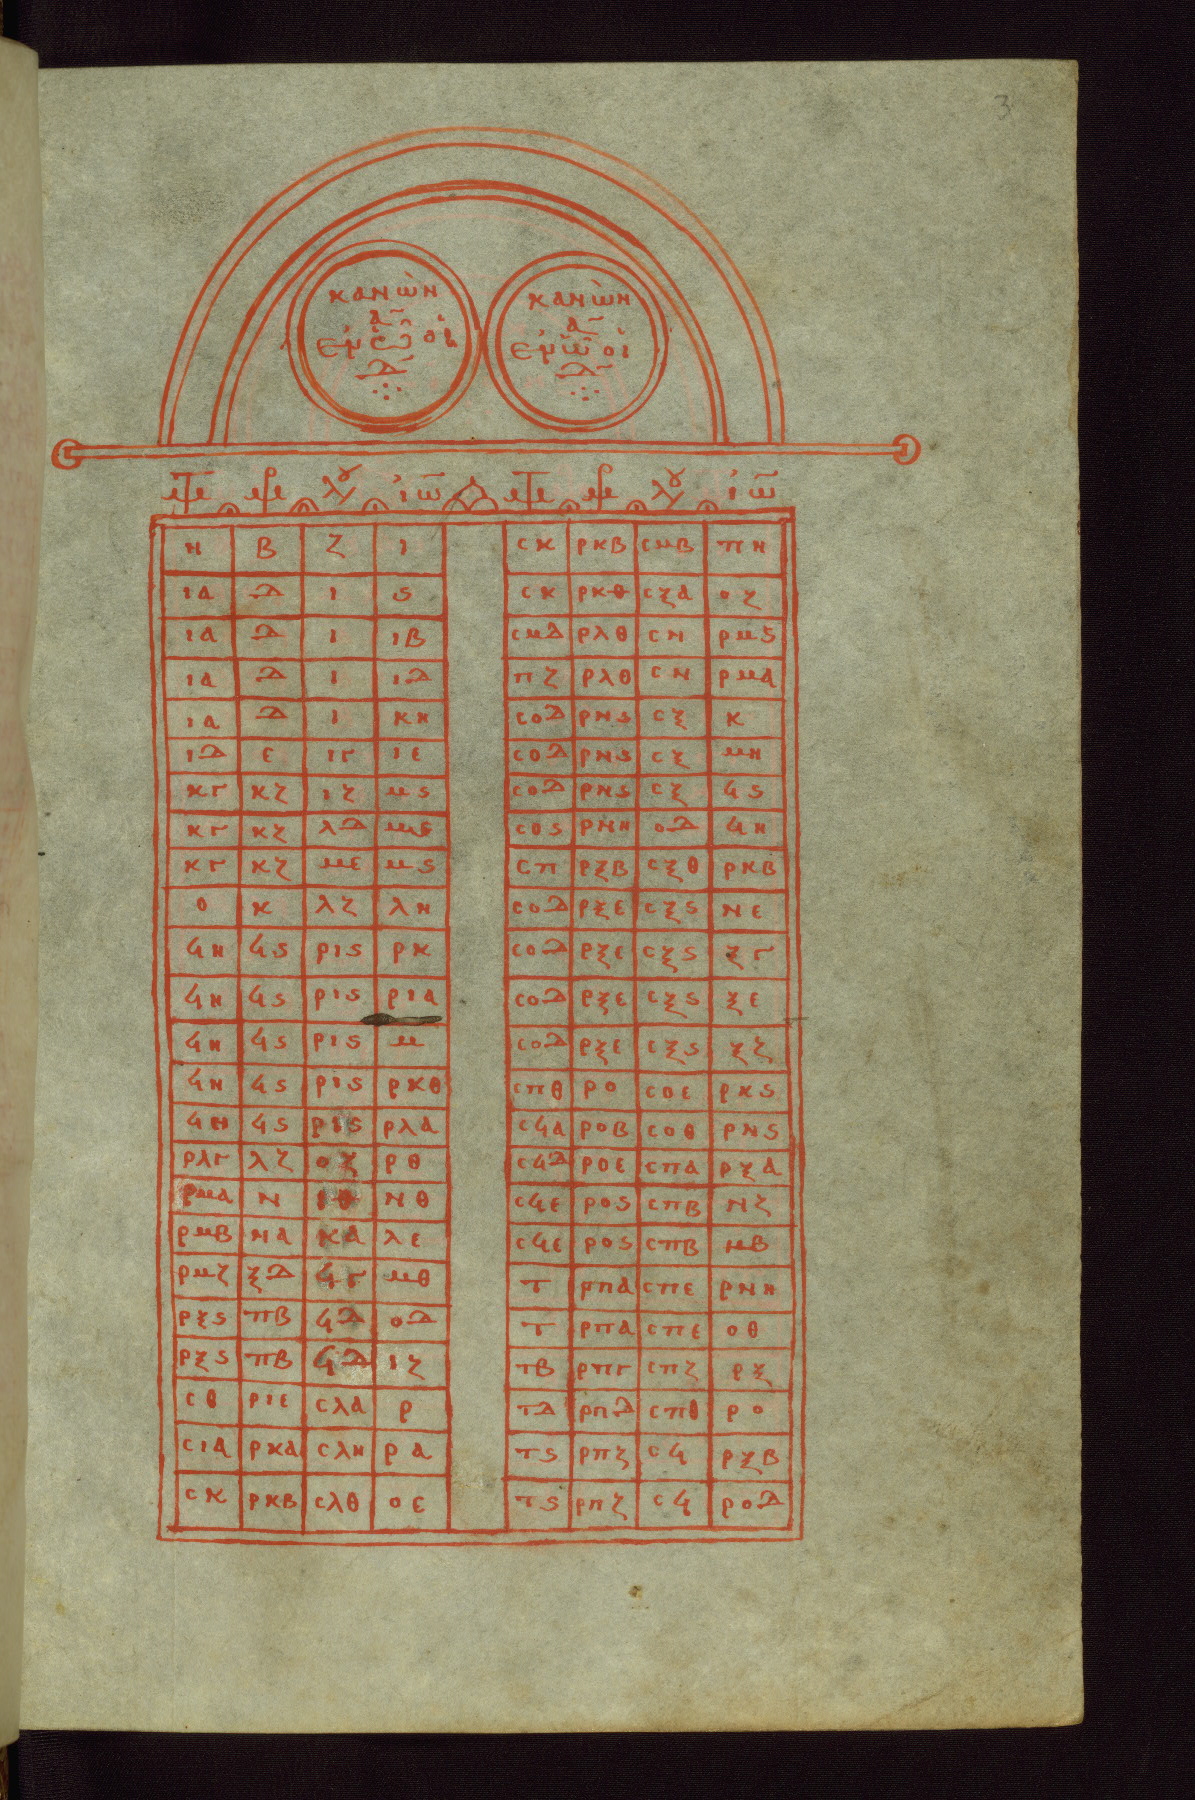 3
κανὼν
α
ἐν ὧ οἱ
δ
κανὼν
α
ἐν ὧ οἱ
δ
ΜΤ ΜΡ λου ἰω ΜΤ ΜΡ λου ἰω
η β ζ ι σκ ρκβ σμβ πη
ια δ ι ϛ σκ ρκθ σξα οζ
ια δ ι ιβ σμδ ρλθ σν ρμϛ
ια δ ι ιδ πζ ρλθ σν ρμα
ια δ ι κη σοδ ρνϛ σξ κ
ιδ ε ιγ ιε σοδ ρνϛ σξ μη
κγ κζ ιζ μϛ σοδ ρνϛ σξ ϟϛ
κγ κζ λδ με σοϛ ρνη οδ ϟη
κγ κζ με μϛ σπ ρξβ σξθ ρκβ
ο κ λζ λη σοδ ρξε σξϛ νε
ϟη ϟϛ ριϛ ρκ σοδ ρξε σξϛ ξγ
ϟη ϟϛ ριϛ ρια σοδ ρξε σξϛ ξε
ϟη ϟϛ ριϛ μ σοδ ρξε σξϛ ξζ
ϟη ϟϛ ριϛ ρκθ σπθ ρο σοε ρκϛ
ϟη ϟϛ ριϛ ρλα σϟα ροβ σοθ ρνϛ
ρλγ λζ οζ ρθ σϟδ ροε σπα ρξα
ρμα ν ιθ νθ σϟε ροϛ σπβ νζ
ρμβ να κα λε σϟε ροϛ σπβ μβ
ρμζ ξδ ϟγ μθ τ ρπα σπε ρνη
ρξϛ πβ ϟδ οδ τ ρπα σπε οθ
ρξϛ πβ ϟδ ιζ τβ ρπγ σπζ ρξ
σθ ριε σλα ρ τδ ρπδ σπθ ρο
σια ρκα σλη ρα τϛ ρπζ σϟ ρξβ
σκ ρκβ σλθ οε τϛ ρπζ σϟ ροδ